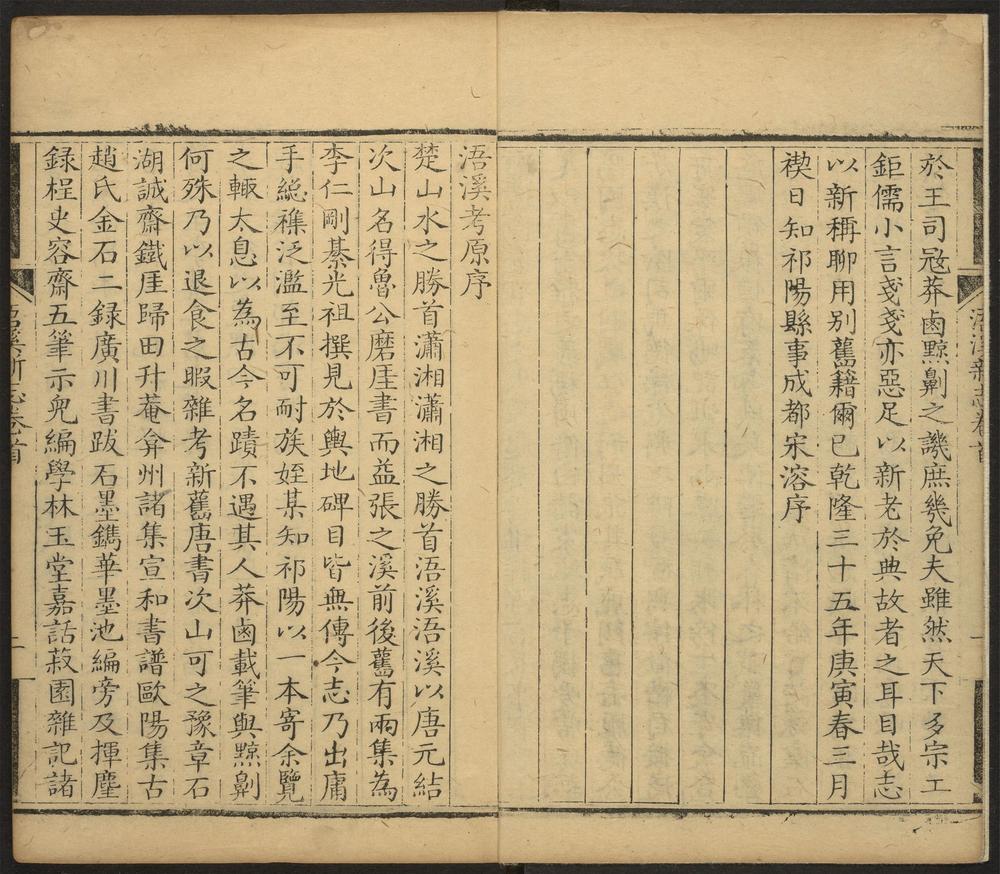 於王司寇莽鹵黥劓之譏庶幾免夫雖然天下多宗工
鉅儒小言戔戔亦惡足以新老於典故者之耳目哉志
以新稱聊用别舊籍爾已乾隆三十五年庚寅春三月
禊日知祁陽縣事成都宋溶序
浯溪新志卷首
一
浯溪考原序
楚山水之勝首瀟湘瀟湘之勝首浯溪浯溪以唐元結
次山名得魯公磨厓書而益張之溪前後舊有兩集為
李仁剛綦光祖撰見於輿地碑目皆無傳今志乃出庸
手緫穕泛濫至不可耐族姪某知祁陽以一本寄余覽
之輙太息以為古今名蹟不遇其人莽鹵載筆與黥劓
何殊乃以退食之暇雜考新舊唐書次山可之豫章石
湖誠齋鐵厓歸田升菴弇州諸集宣和書譜歐陽集古
趙氏金石二録廣川書跋石墨鐫華墨池編旁及揮麈
録桯史容齋五筆示兒編學林玉堂嘉話菽園雜記諸
浯溪新志卷首